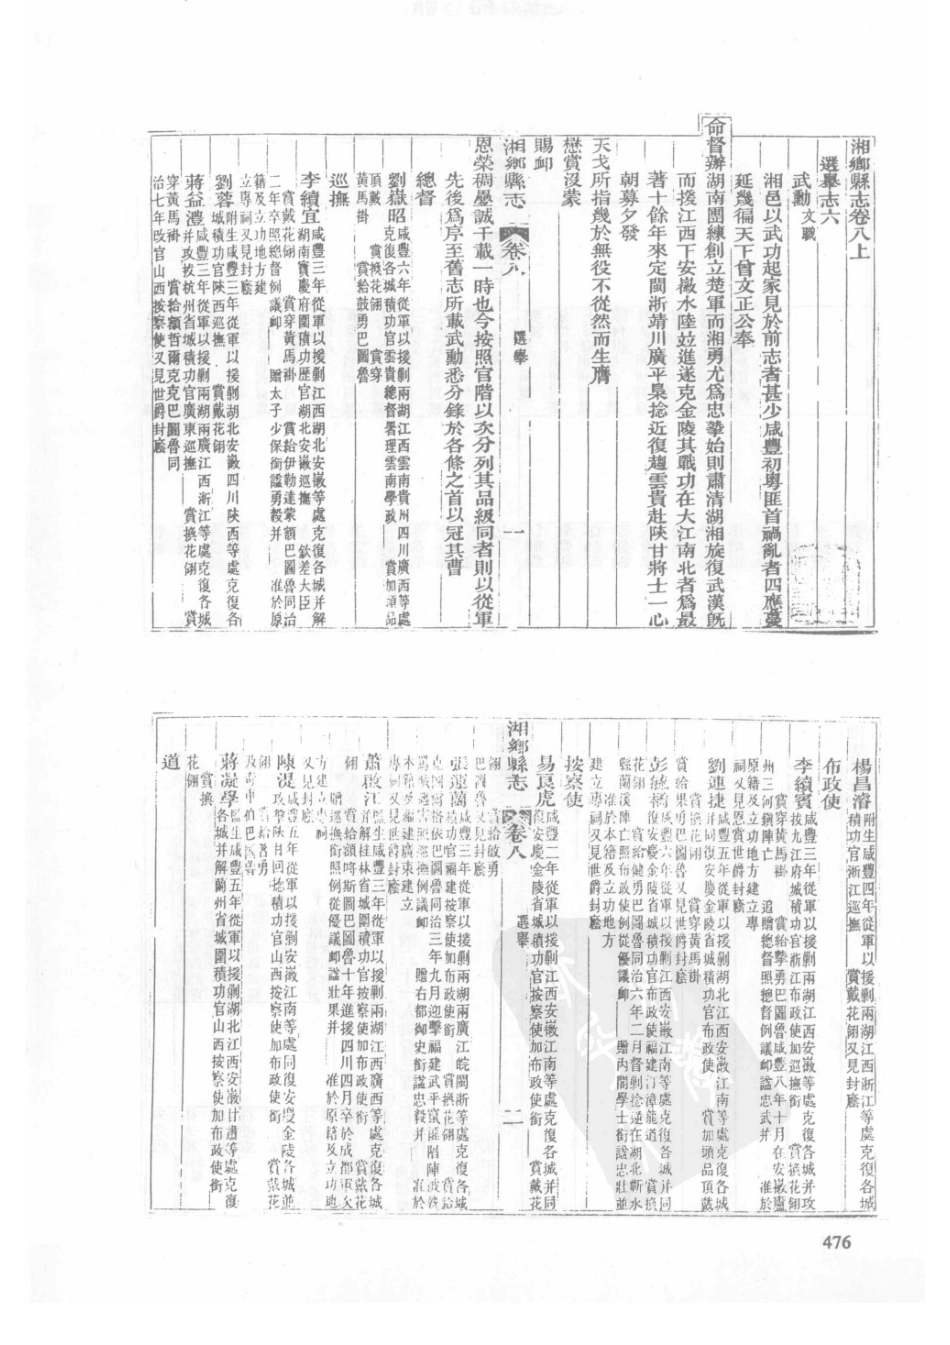 湘鄉縣志卷八上
選舉志六
武勳文職
湘邑以武功起家見於前志者甚少咸豐初粵匪首禍亂者四應蔓
延幾徧天下曾文正公奉
命督辦湖南團練創立楚軍而湘勇尤為忠摯始則肅清湖湘旋復武漢既
而援江西下安徽水陸竝進遂克金陵其戰功在大江南北者為最
著十餘年來定閩浙靖川廣平臬捻近復趨雲貴赴陝甘將士一心
朝募夕發
天戈所指幾於無役不從然而生膺
懋賞沒蒙
賜卹
湘鄉縣志 卷八 選舉 一
恩榮稠疊誠千載一時也今按照官階以次分列其品級同者則以從軍
先後為序至舊志所載武勳悉分錄於各條之首以冠其曹
總督
劉嶽昭咸豐六年從軍以援剿兩湖江西雲南貴州四川廣西等處
克復各城積功官雲貴總督署理雲南學政 賞加頭品
頂戴 賞換花翎 賞穿
黃馬褂 賞給鼓勇巴圖魯
巡撫
李續宜咸豐三年從軍以援剿江西湖北安徽等處克復各城并解
湖南寶慶府圍積功歷官湖北安徽巡撫 欽差大臣
賞戴花翎 賞穿黃馬褂 賞給伊勒達蒙額巴圖魯同治
二年卒照總督例議卹 贈太子少保銜諡勇毅并 准於原
籍及立功地方建
立專祠又見封廕
劉蓉附生咸豐三年從軍以援剿湖北安徽四川陝西等處克復各
城積功官陝西巡撫 賞戴花翎
蔣益澧咸豐三年從軍以援剿兩湖兩廣江西浙江等處克復各城
并攻拔杭州省城積功官廣東巡撫 賞換花翎 賞
穿黃馬褂 賞給額哲爾克克巴圖魯同
治七年改官山西按察使又見世爵封廕
楊昌濬附生咸豐四年從軍以援剿兩湖江西浙江等處克復各城
積功官浙江巡撫 賞戴花翎又見封廕
布政使
李續賓咸豐三年從軍以援剿兩湖江西安徽等處克復各城并攻
拔九江府城積功官浙江布政使加巡撫銜 賞換花翎
賞穿黃馬褂 賞給摯勇巴圖魯咸豐八年十月在安徽廬
州三河鎮陣亡 追贈總督照總督例議卹諡忠武并 准於
原籍及立功地方建立專
祠又見恩賞世爵封廕
劉連捷咸豐五年從軍以援剿湖北江西安徽江南等處克復各城
并同復安慶金陵省城積功官布政使 賞加頭品頂戴
賞換花翎 賞穿黃馬褂
賞給果勇巴圖魯又見世爵封廕
咸豐六年從軍以援剿江西安徽江南等處克復各城并同
復安慶金陵省城積功官布政使福建汀漳龍道 賞換
花翎 賞給健勇巴圖魯同治六年二月督剿捻逆在湖北蘄水
縣蘭溪陣亡照布政使例從優議卹 贈內閣學士銜諡忠壯並
准於本籍及立功地方
建立專祠又見世爵封廕
按察使
易良虎咸豐二年從軍以援剿江西安徽江南等處克復各城并同
復安慶金陵省城積功官按察使加布政使銜 賞戴花
翎 賞給啟勇
巴圖魯又見封廕
湘鄉縣志 卷八 選舉 二
張運蘭咸豐三年從軍以援剿兩湖兩廣江皖閩浙等處克復各城
積功官福建按察使加布政使銜 賞換花翎 賞給
巴圖魯同治三年九月迎擊福建武平竄匪陷陣
罵賊遇害照巡撫例議卹 贈右都御史銜諡忠毅并 准於
本籍及福建廣東建立
專祠又見世爵封廕
蕭啟江監生咸豐三年從軍以援剿兩湖江西廣西等處克復各城
并解桂林省城圍積功官按察使加布政使銜 賞戴花
翎 賞給額哷斯圖巴圖魯十年進援四川四月卒於成都軍次
贈巡撫銜照例從優議卹諡壯果并 准於原籍及立功地
方建立專祠
又見封廕
陳湜咸豐五年從軍以援剿安徽江南等處同復安慶金陵各城並
攻擊陝甘回捻積功官山西按察使加布政使銜 賞戴花
翎 賞給著勇
蔣凝學監生咸豐五年從軍以援剿湖北江西安徽甘肅等處克復
各城并解蘭州省城圍積功官山西按察使加布政使銜
賞換
花翎
道
476